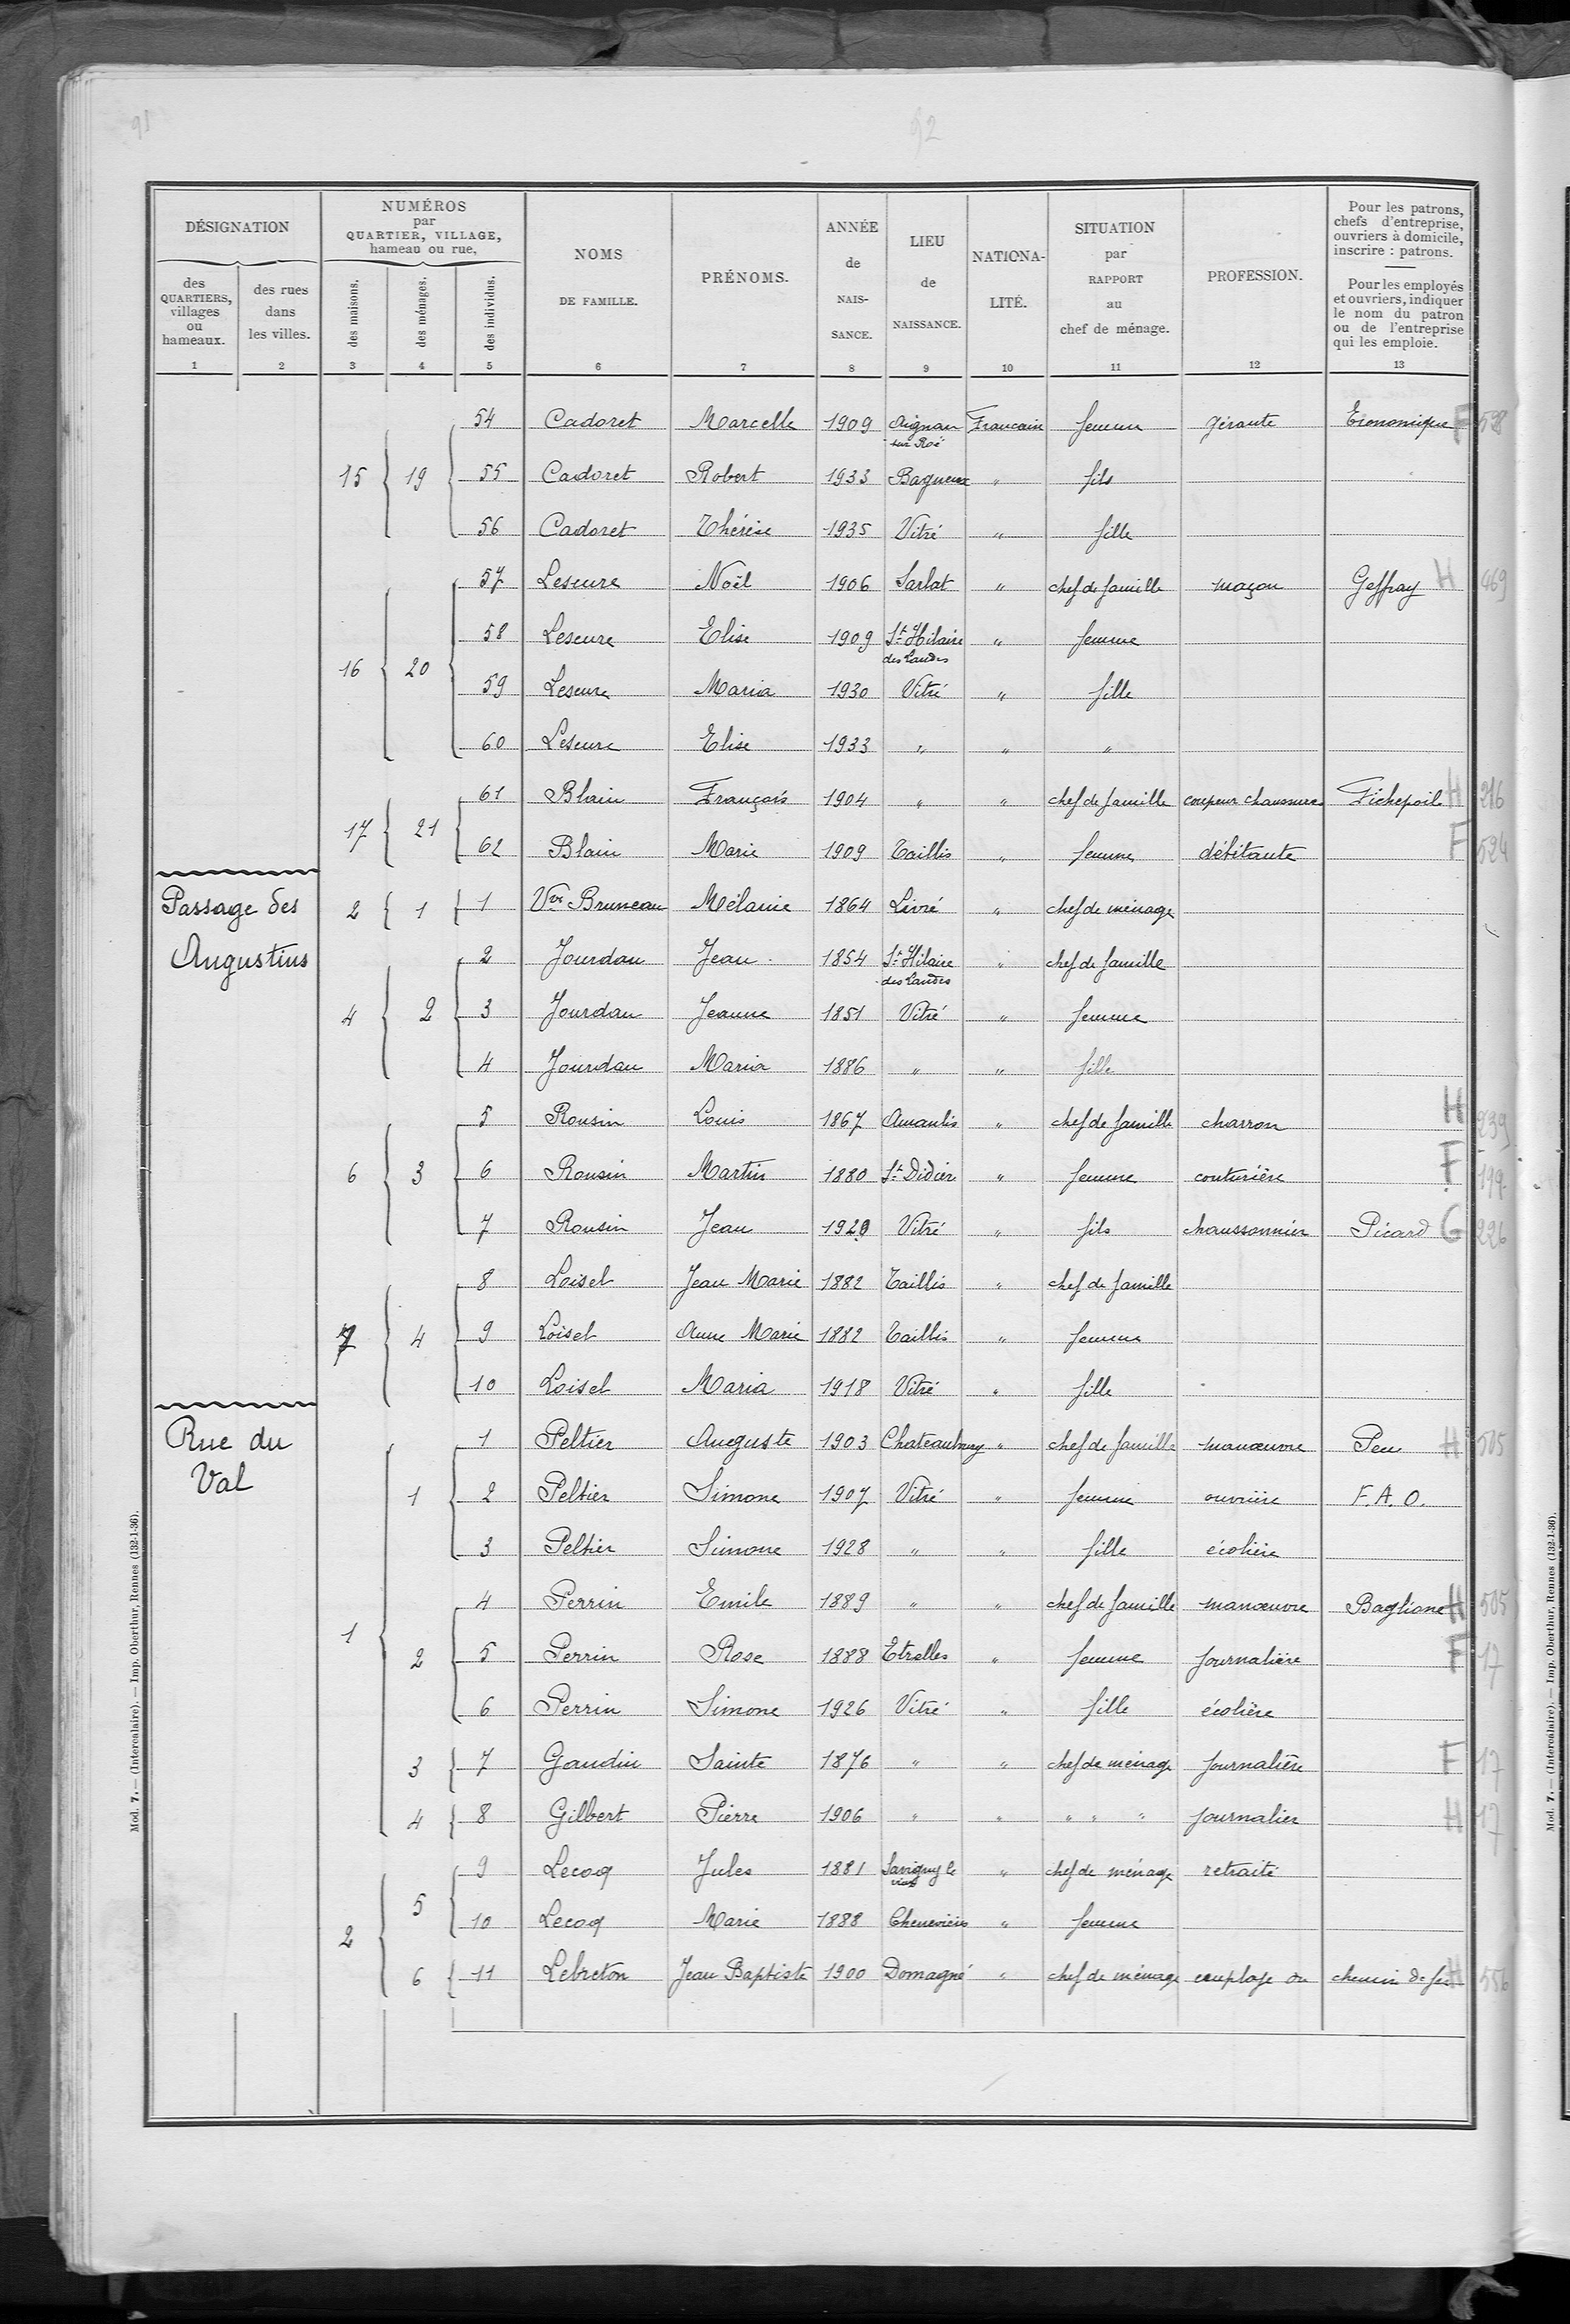 92
DÉSIGNATION
des QUARTIERS, villages ou hameaux.
des rues dans les villes.
NUMÉROS par QUARTIER, VILLAGE, hameau ou rue.
des maisons.
des ménages.
des individus.
NOMS DE FAMILLE.
PRÉNOMS.
ANNÉE de NAIS- SANCE.
LIEU de NAISSANCE.
NATIONA- LITÉ.
SITUATION par RAPPORT au chef de ménage.
PROFESSION.
Pour les patrons, chefs d'entreprise, ouvriers à domicile, inscrire : patrons.
Pour les employés et ouvriers, indiquer le nom du patron ou de l'entreprise qui les emploie.
1 2 3 4 5 6 7 8 9 10 11 12 13
54 Cadoret Marcelle 1909 Aignan sur Roë Francaise femme gérante Economique F 598
15 19 55 Cadoret Robert 1933 Bagneux " fils
56 Cadoret Thérèse 1935 Vitré " fille
57 Leseure Noël 1906 Sarlat " chef de famille maçon Geffray H 469
58 Leseure Elise 1909 St Hilaire des Landes " femme
16 20 59 Leseure Maria 1930 Vitré " fille
60 Leseure Elise 1933 " " "
61 Blain François 1904 " " chef de famille coupeur chaussures Fichepoil H 216
17 21 62 Blain Marie 1909 Taillis " femme débitante F 524
Passage des Augustins
2 1 1 Vve Bruneau Mélanie 1864 Livré " chef de ménage
2 Jourdan Jean 1854 St Hilaire des Landes " chef de famille
4 2 3 Jourdan Jeanne 1851 Vitré " femme
4 Jourdan Maria 1886 " " fille
5 Rousin Louis 1867 Amanlis " chef de famille charron H 239
6 3 6 Rousin Martin 1880 St Didier " femme couturière F 199
7 Rousin Jean 1920 Vitré " fils chaussonnier Picard G 226
8 Loisel Jean Marie 1882 Taillis " chef de famille
7 4 9 Loisel Anne Marie 1882 Taillis " femme
10 Loisel Maria 1918 Vitré " fille
Rue du Val
1 Peltier Auguste 1903 Chateaubourg " chef de famille manœuvre Peu H 505
1 2 Peltier Simone 1907 Vitré " femme ouvrière F. A. O.
3 Peltier Simone 1928 " " fille écolière
4 Perrin Emile 1889 " " chef de famille manœuvre Baglione H 505
1 2 5 Perrin Rose 1888 Etrelles " femme journalière F 17
6 Perrin Simone 1926 Vitré " fille écolière
3 7 Gaudin Sainte 1876 " " chef de ménage journalière F 17
4 8 Gilbert Pierre 1906 " " " " " journalier H 17
5 9 Lecoq Jules 1881 Savigny le vieux " chef de ménage retraité
2 10 Lecoq Marie 1888 " femme
6 11 Lebreton Jean Baptiste 1900 Domagné " chef de ménage employé du chemin de fer H 556
Mod. 7. — (Intercalaire). — Imp. Oberthur, Rennes (132-1-36).
Mod. 7. — (Intercalaire). — Imp. Oberthur, Rennes (132-1-36).